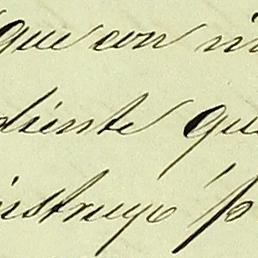 que con m
diente que
instruyo p